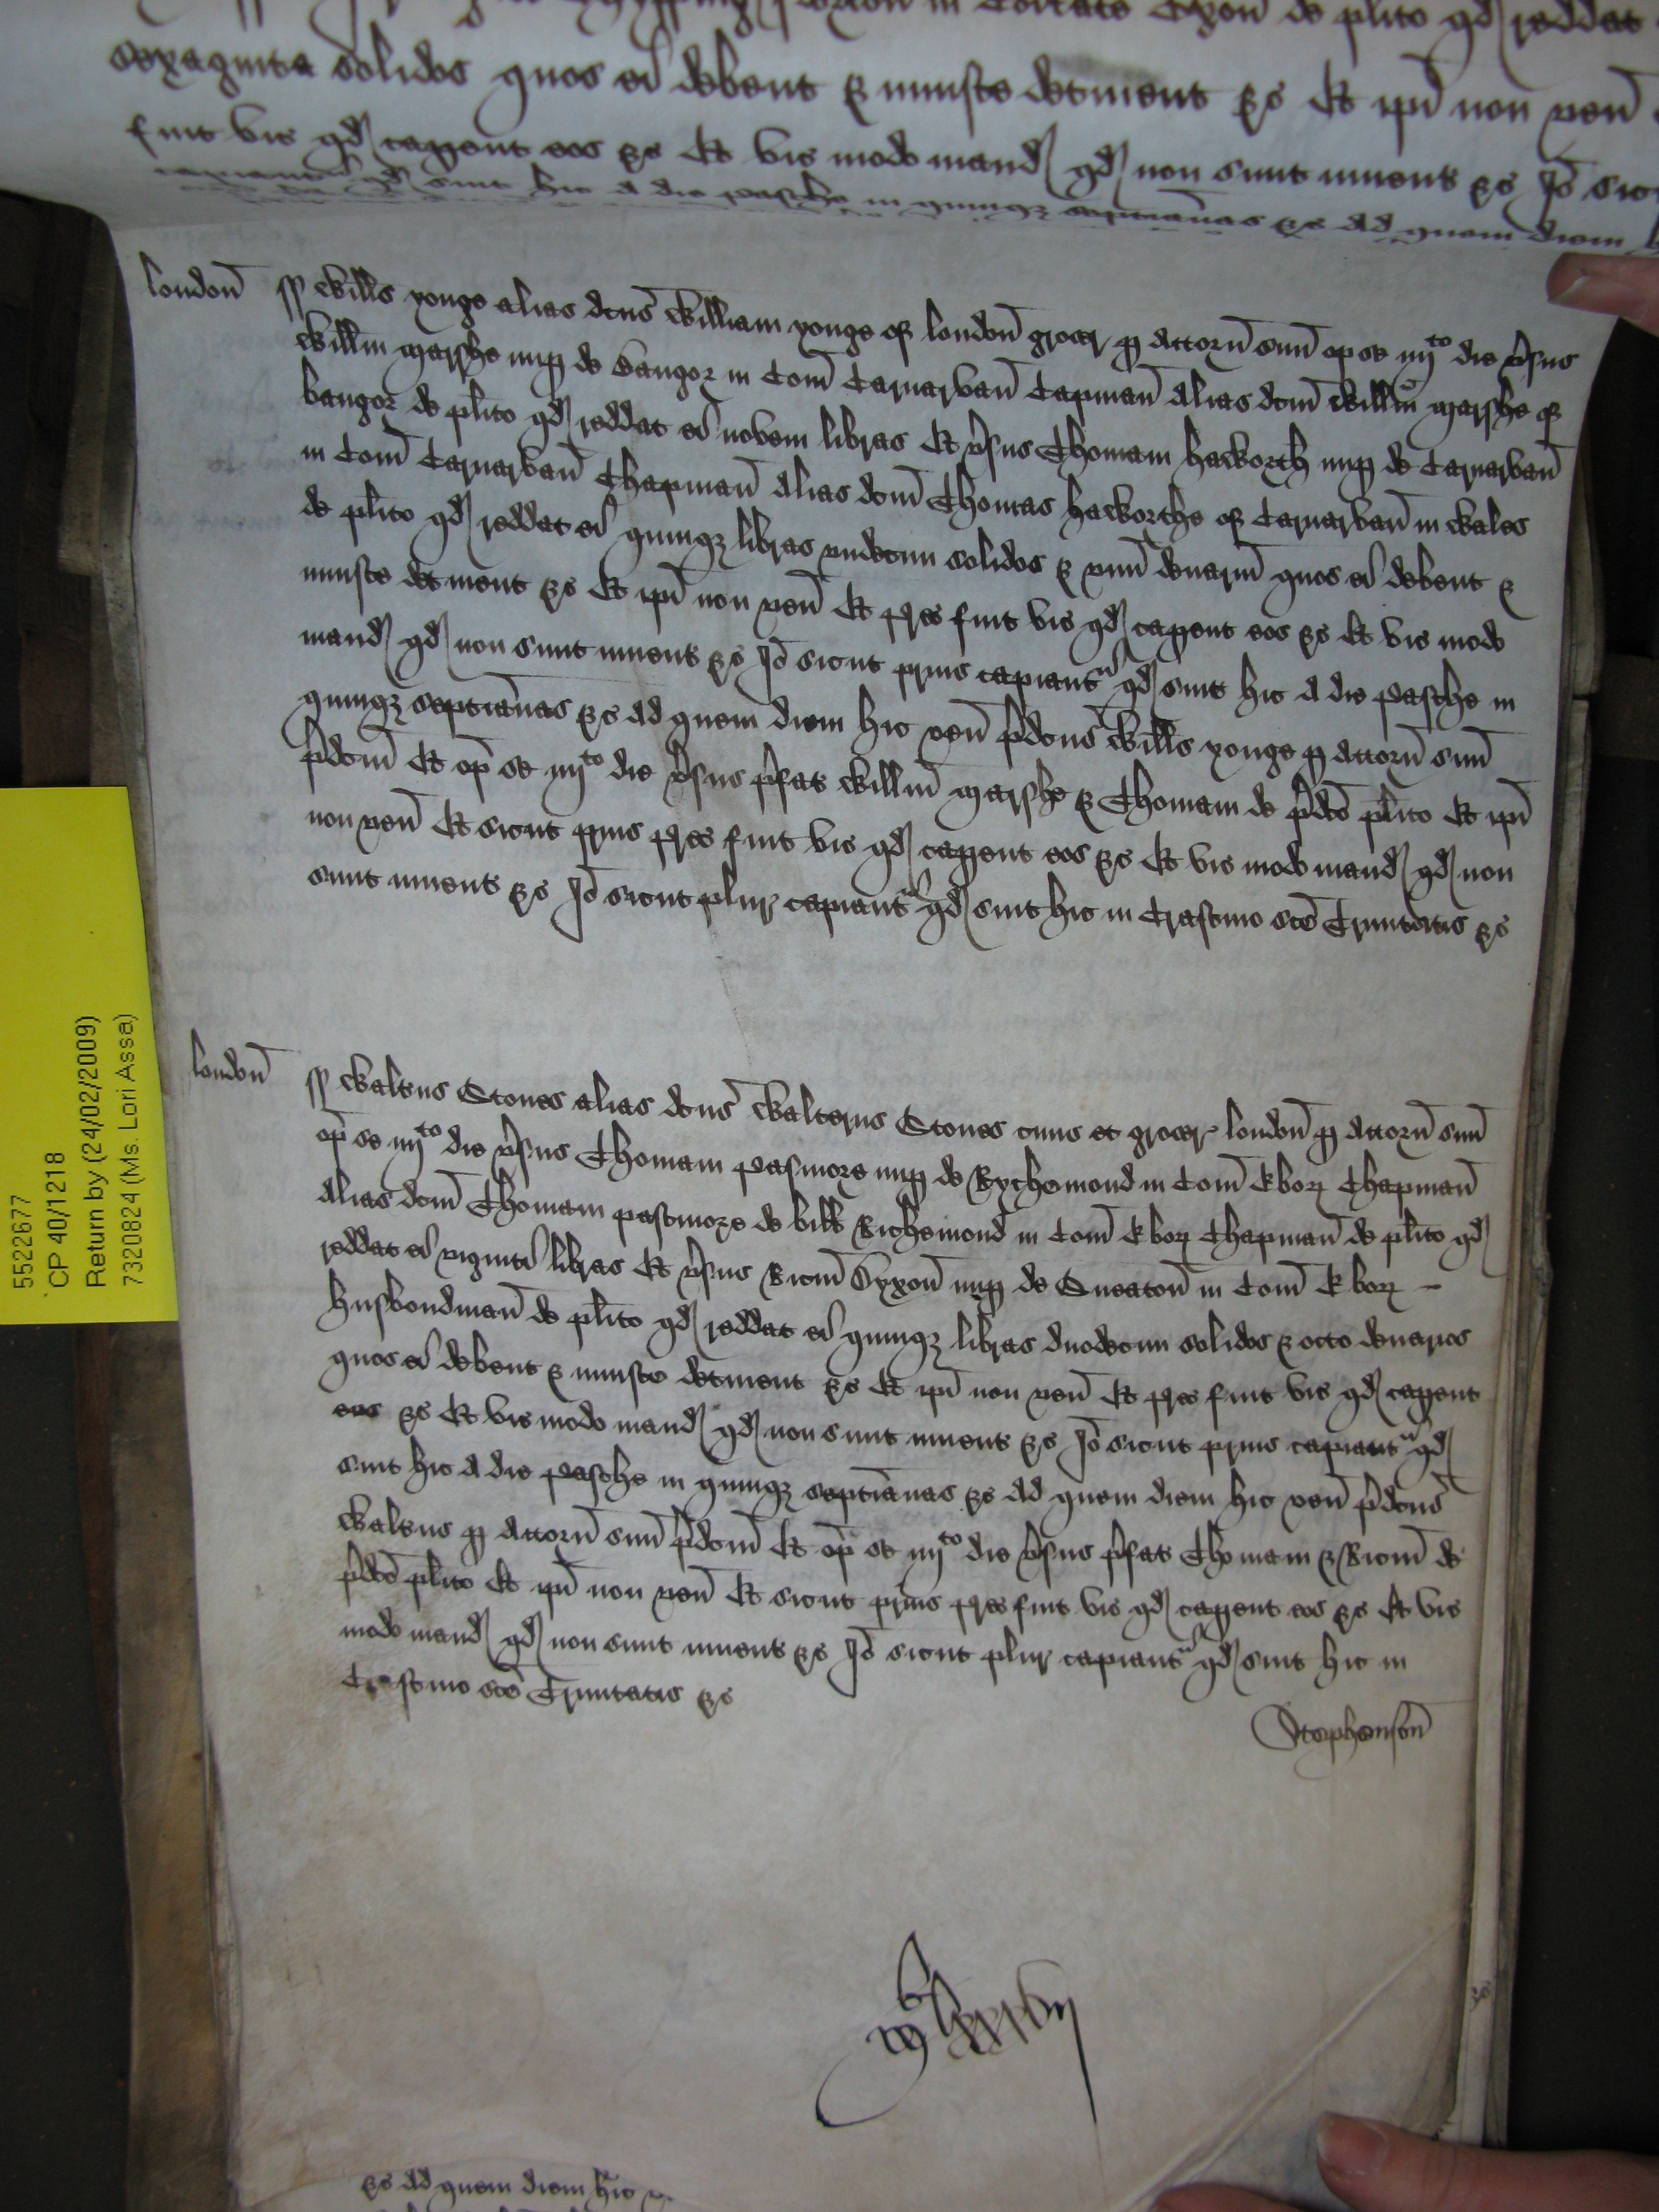 in Civitate Exon̄ de plito qd reddat
sexaginta solidos quos ei debent & iniuste detinent &c Et ip̄i non ven̄
fuit vic qd caperet eos &c Et vic modo mand qd non sunt inventi &c Iō sicut
capiantur qd sint hic a die Pasche in quinqz septimanas &c Ad quem diem
london̄ ss Will̄s yonge alias dc̄us William yonge of london̄ grocer p attorn̄ suū op se iiijto die v̄sus
Will̄m Marshe nup de Bangor in Com̄ Carnarvan̄ Capman̄ alias dc̄m Will̄m Marshe of
bangor de pl̄ito qd reddat ei novem libras Et v̄sus Thomam haworth nup de Carnarvan̄
in Com̄ Carnarvan̄ Chapman̄ Alias dc̄m Thomas haworthe of Carnarvan̄ in Wales
de pl̄ito qd reddat ei quinqz libras undecim solidos & unū denariū quos ei debent &
iniuste detinent &c Et ip̄i non ven̄ Et prec fuit vic qd caperet eos &c Et vic modo
mand qd non sunt inventi &c Iō sicut prius capiantur qd sint hic A die Pasche in
quinqz septimanas &c Ad quem diem hic ven̄ p̄dcūs Will̄s yonge p attorn̄ suū
p̄dcm̄ Et op̄ se iiijto die v̄sus p̄fat Will̄m Marshe & Thomam de p̄dco pl̄ito Et ip̄i
non ven̄ Et sicut prius prec fuit vic qd caperet eos &c Et vic modo mand qd non
sunt inventi &c Iō sicut plur capiantur qd sint hic in Crastino sce Trinitatis &c
london̄ ss Walterus Stones alias dc̄us Walterus Stones civis et grocer london̄ p Attorn̄ suū
op̄ se iiijto die v̄sus Thomam Pasmore nup de Rychemond in Com̄ Ebor Chapman̄
Alias dc̄m Thomam pastmore de vill Richemond in Com̄ Ebor Chapman̄ de pl̄ito qd
reddat ei viginti libras Et v̄sus Ric̄m Dyxon̄ nup de Sneaton̄ in Com̄ Ebor
husbondman̄ de pl̄ito qd reddat ei quinqz libras duodecim solidos & octo denarios
quos ei debent & iniuste detinent &c Et ip̄i non ven̄ Et prec fuit vic qd caperet
eos &c Et vic modo mand qd non sunt inventi &c Iō sicut prius capiantur qd
sint hic A die Pasche in quinqz septimanas &c Ad quem diem hic ven̄ p̄dcūs
Walterus p Attorn̄ suū p̄dcm̄ Et op̄ se iiijto die v̄sus p̄fat Thomam & Ric̄m de
p̄dco pl̄ito Et ip̄i non ven̄ Et sicut prius prec fuit vic qd caperet eos &c Et vic
modo mand qd non sunt inventi &c Iō sicut plur capiantur qd sint hic in
Crastino sce Trinitatis &c
Stephenson̄
&c Ad quem diem hic
5522677
CP 40/1218
Return by (24/02/2009)
7320824 (Ms. Lori Assa)